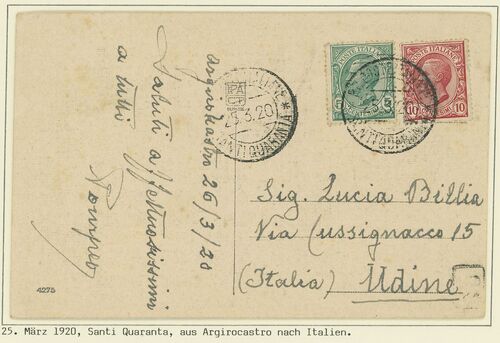 Argirokastro 26/3/20
Saluti affettuosissimi
a tutti
Pompeo
4275
POSTE ITALIANE
5
5
POSTE ITALIANE
10
10
25.3.20
SANTI QUARANTA
25.3.20
SANTI QUARANTA
Sig. Lucia Billia
Via Cussignacco 15
(Italia) Udine
25. März 1920, Santi Quaranta, aus Argirocastro nach Italien.